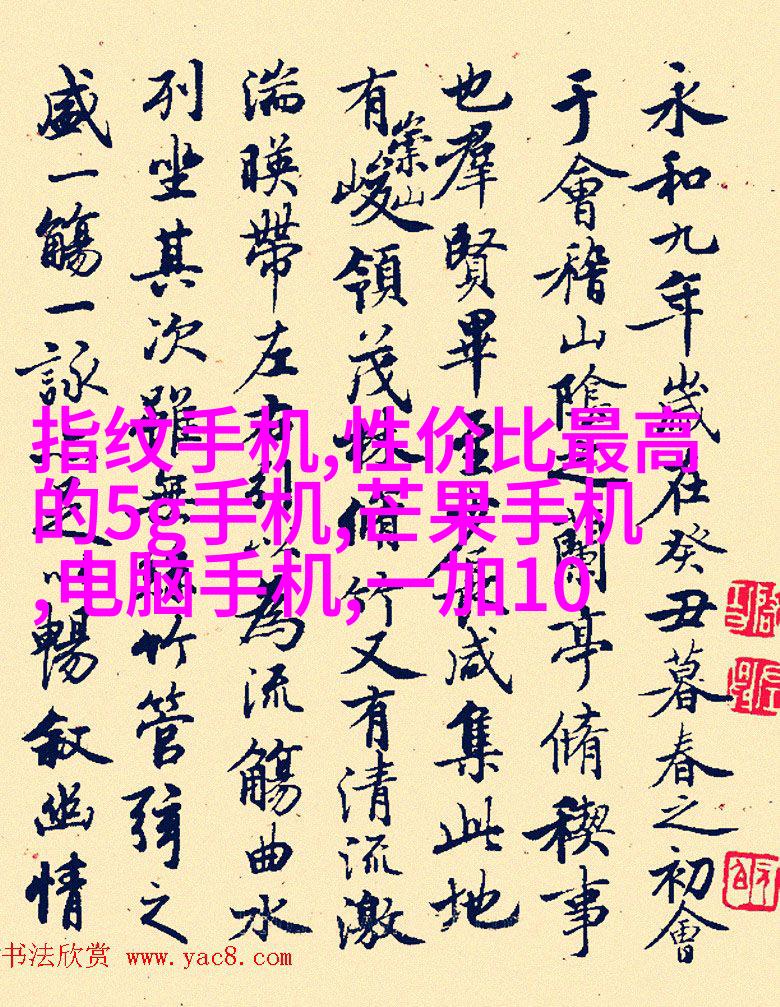 永和九年歲在癸丑暮春之初會
于會稽山陰之蘭亭脩稧事
也羣賢畢至少長咸集此地
有崇山峻領茂林脩竹又有清流激
湍暎帶左右引以為流觴曲水
列坐其次雖無絲竹管弦之
盛一觴一詠亦足以暢敘幽情
指纹手机,性价比最高
的5g手机,芒果手机
,电脑手机,一加10
书法欣赏 www.yac8.com